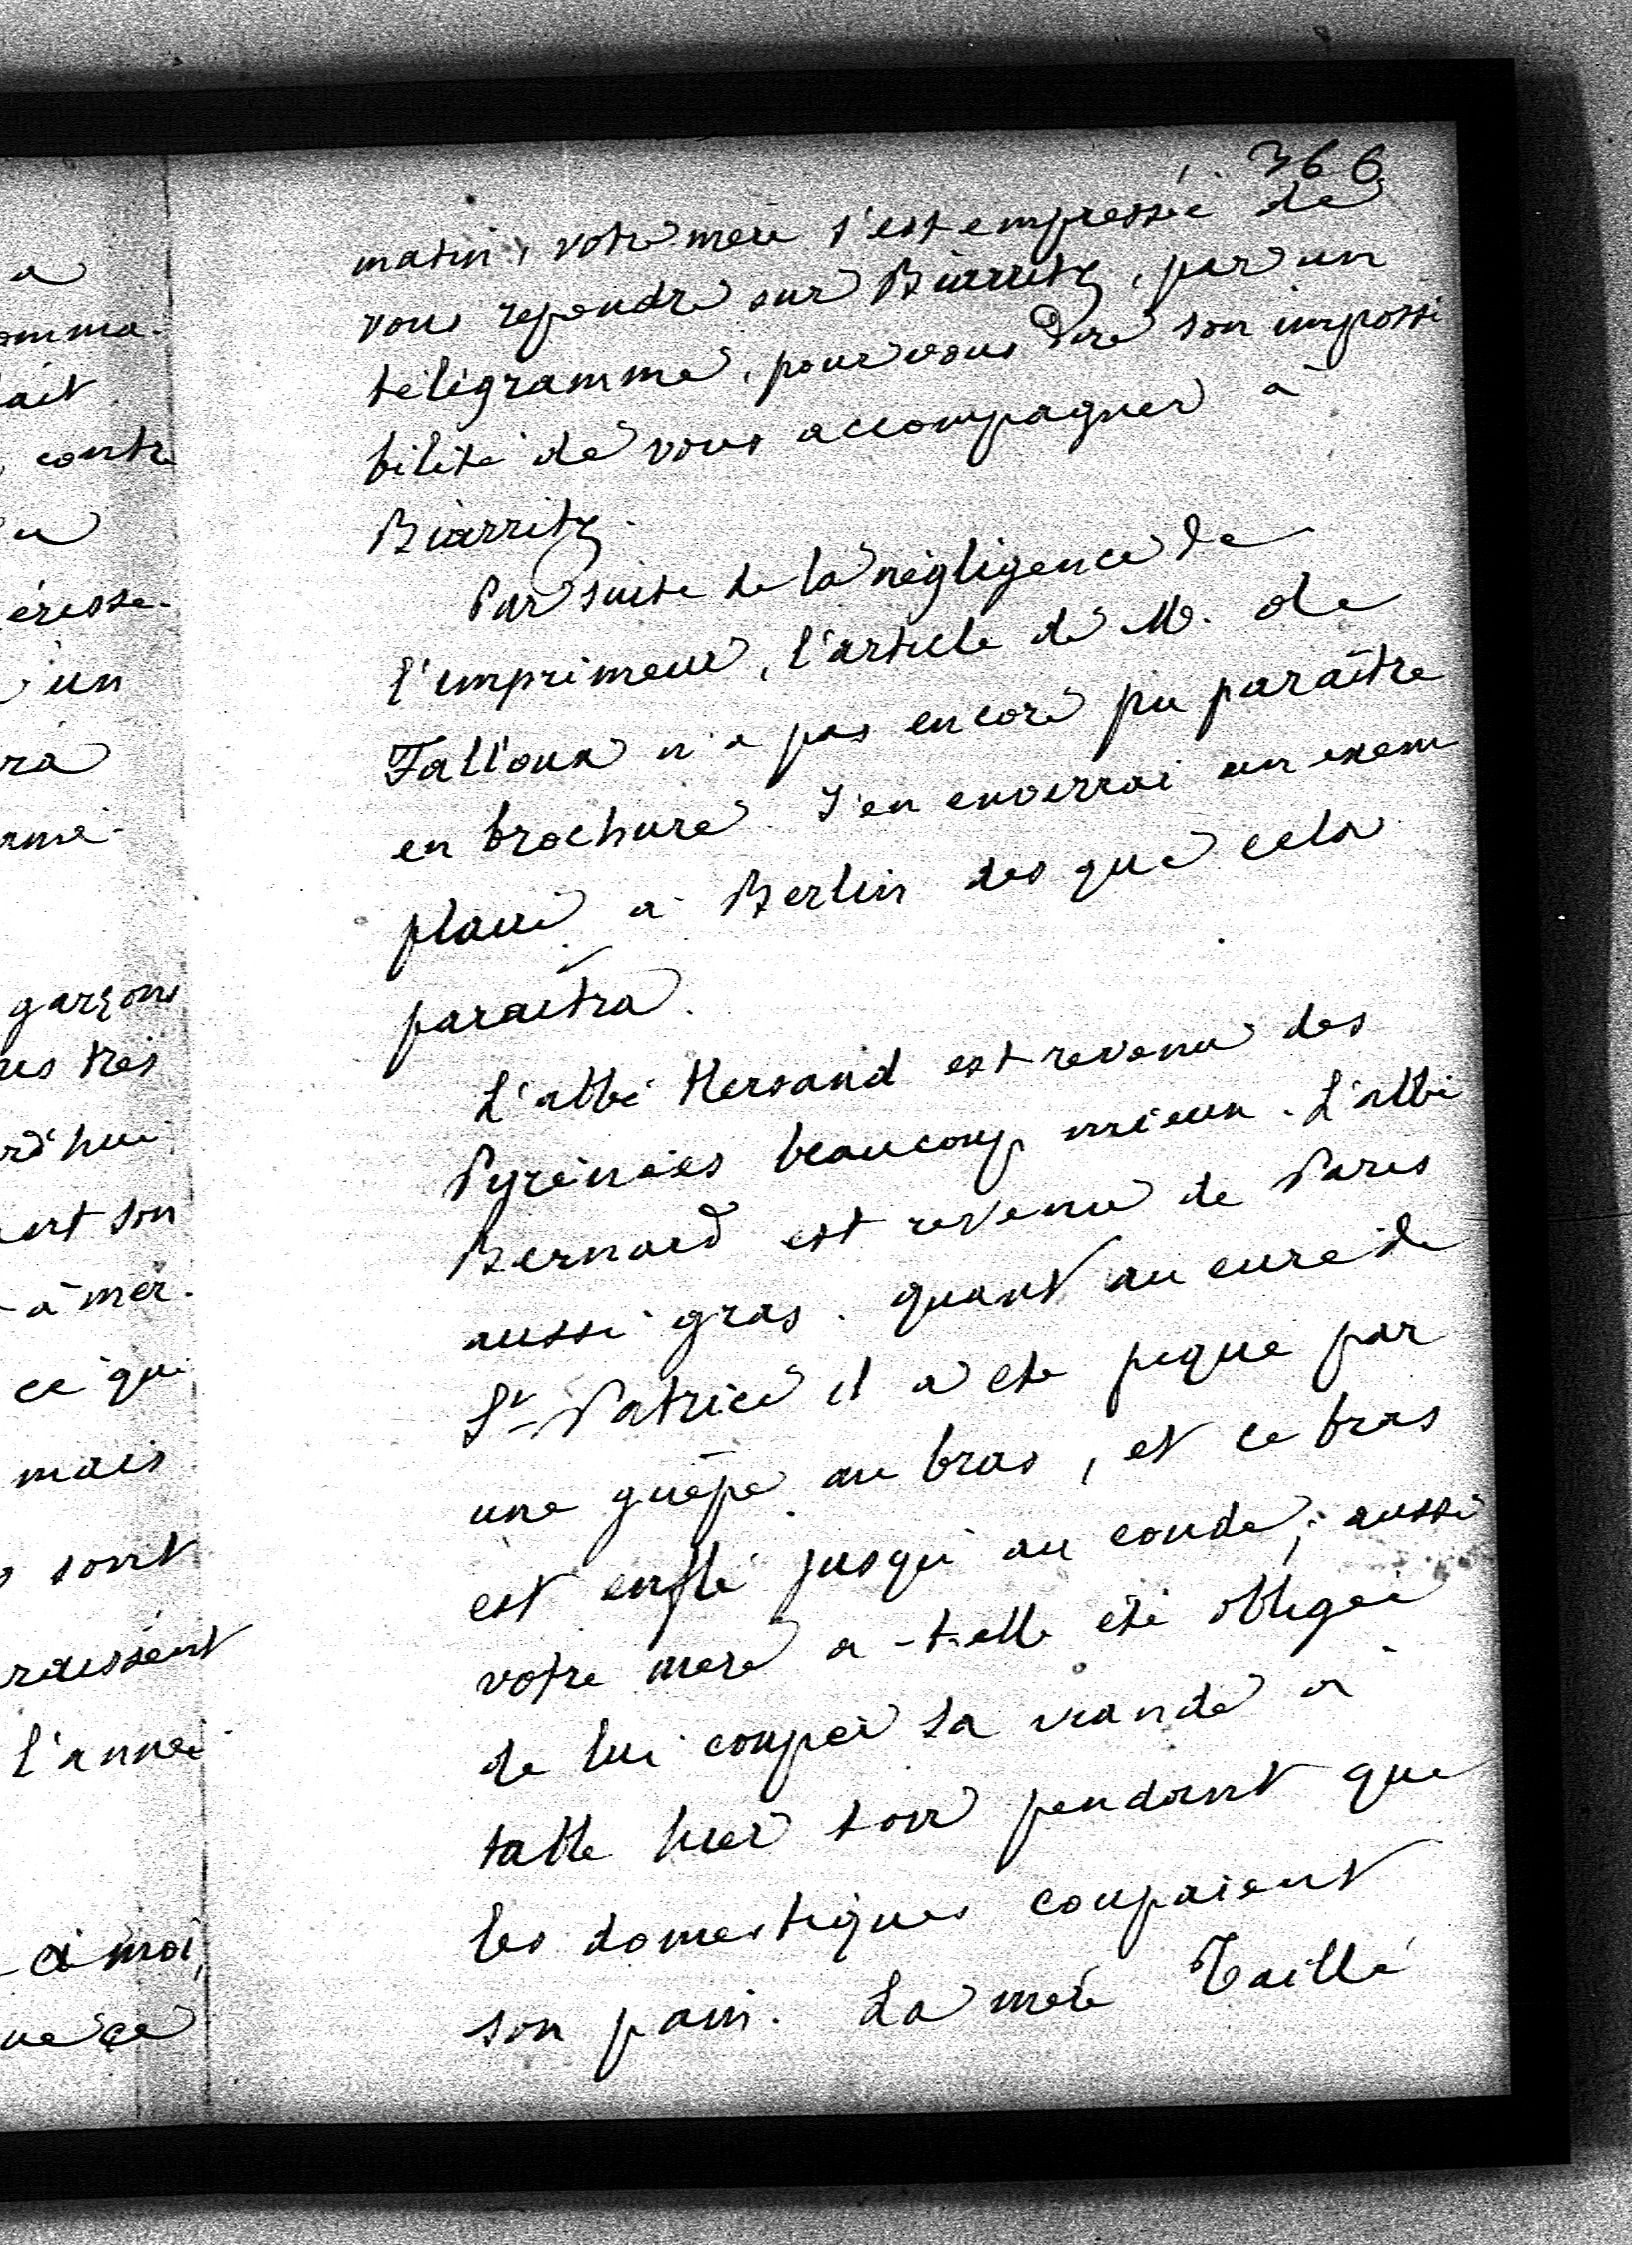 366
matin, votre mère s'est empressée de
vous repondre sur Biarritz, par un
télégramme, pour vous dire son impossi
bilité de vous accompagner à
Biarritz.
Par suite de la négligence de
l'imprimeur, l'article de M. de
Falloux n'a pas encore pu paraître
en brochure. J'en enverrai un exem
plaire à Berlin des que cela
paraîtra.
L'abbé Hersand est revenu des
Pyrénées beaucoup mieux. L'abbé
Bernard est revenu de Paris
aussi gras. quant au cure de
St Patrice il a ete piqué par
une guêpe au bras, et ce bras
est enflé jusqu'au coude; aussi
votre mere a-t-elle été obligée
de lui couper sa viande à
table hier soir pendant que
les domestiques coupaient
son pain. La mère Taillé
a
omma-
ait
contre
un
ra
garçons
très
rd'hui
son
à mer.
ce qui
mais
sont
raissent
l'année
à moi,
ce